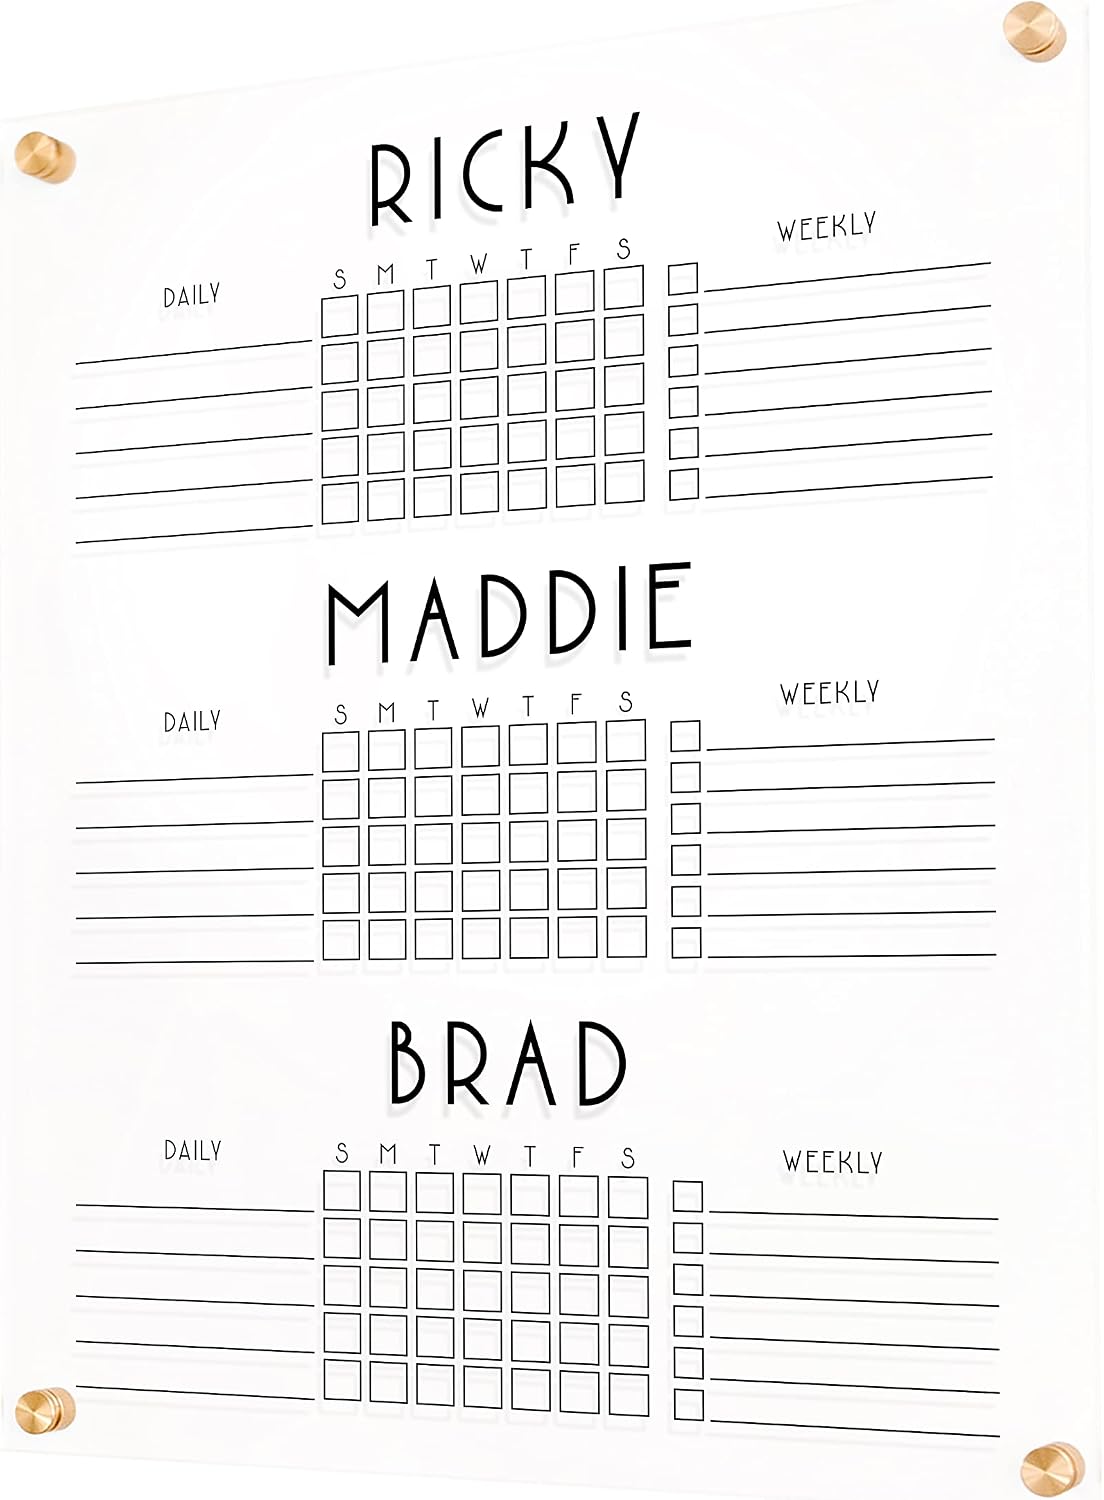 RICKY
DAILY
S M T W T F S
WEEKLY
MADDIE
DAILY
S M T W T F S
WEEKLY
BRAD
DAILY
S M T W T F S
WEEKLY